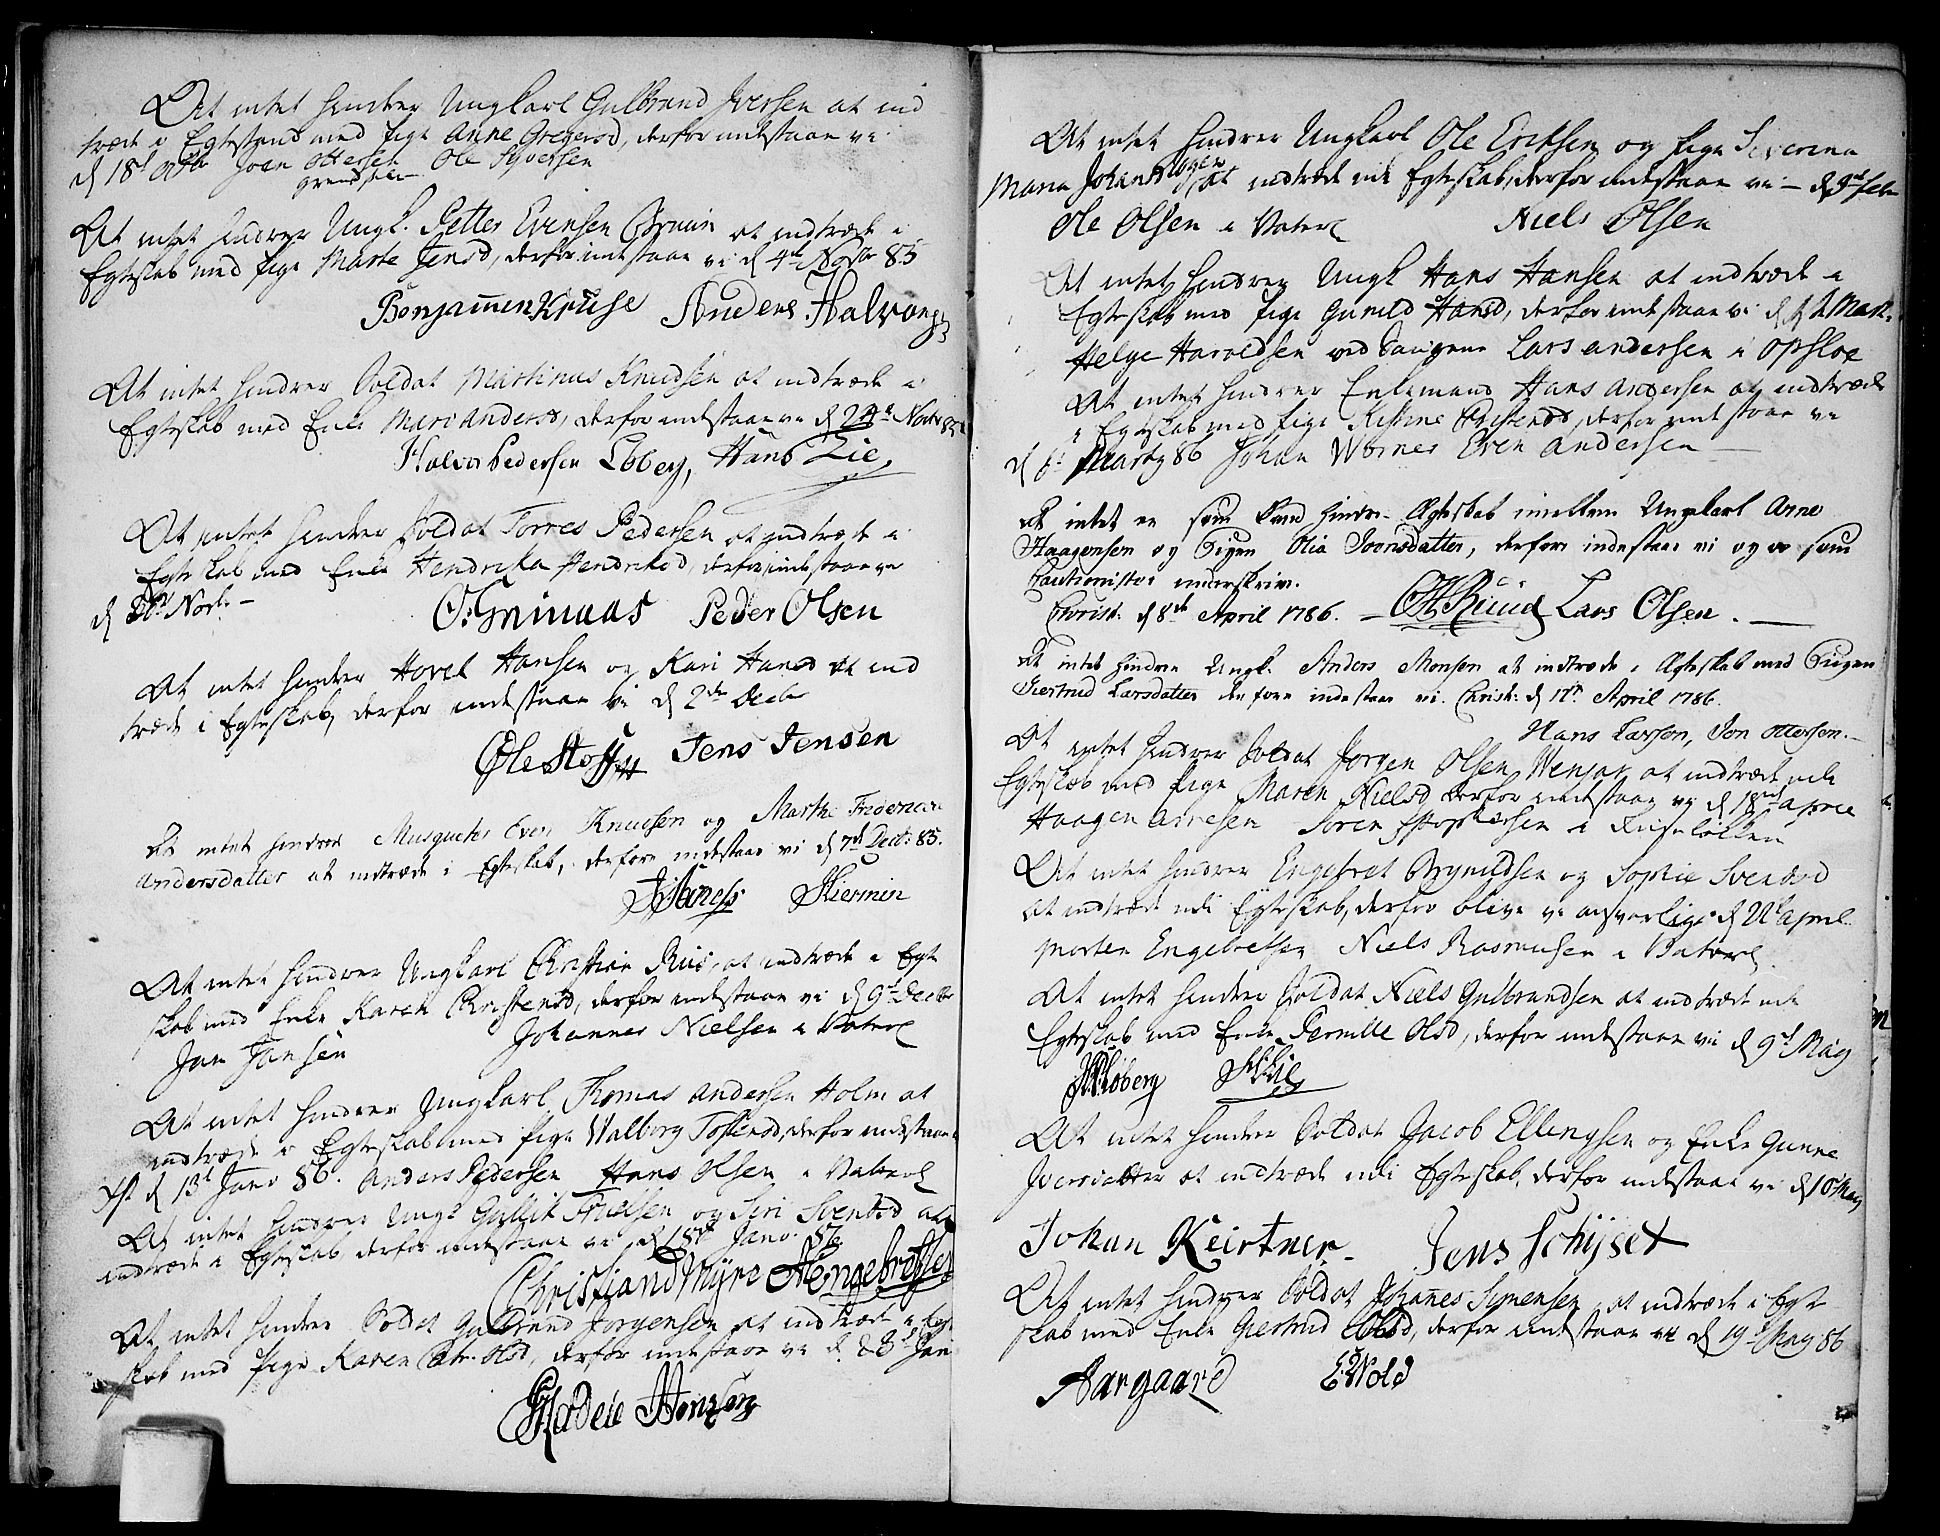 At intet hindrer Ungkarl Gulbrand Iversen at ind
træde i Egtestand med Pige Anne Gregersd, derfor indestaae vi
d 18t Joen Ottersen Ole Syversen
At intet hindrer Ungk. Petter Evensen at indtræde i
Egteskab med Pige Marte Jensd, derfor indestaae vi d 4de Novbr 85
Benjamen Kruse Anders Halvors
At intet hindrer Soldat Martinus Knudsen at indtræde i
Egteskab med Enke Mari Andersd, derfor indestaae vi d 24de Novbr 85
Halvor Pedersen Hans Lie
At intet hindrer Soldat Torres Pedersen at indtræde i
Egteskab med Enke Hendrika Hendriksd, derfor indestaae vi
d Novb.
Peder Olsen
At intet hindrer Hovel Hansen og Kari Hansd at ind
træde i Egteskab, derfor indestaae vi d 2den Decbr
Jens Jensen
At intet hindrer Musqueter Even Knudsen og Marthe
Andersdatter at indtræde i Egteskab, derfore indestaae vi d 7de Decb: 85.
At intet hindrer Ungkarl Christian Ruus, at indtræde i Egte
skab med Enke Karen Christensd, derfor indestaae vi d 9de Decbr
Jan Jansen Johannes Nielsen i Vaterl
At intet hindrer Ungkarl Thomas Andersen Holm at
indtræde i Egteskab med Pige Walborg Tostensd, derfor indestaae
d 13t Janv 86. Anders Pedersen Hans Olsen i Vaterl
At intet hindrer Ungk Gullik Truelsen og Siri Svendsd at
indtræde i Egteskab derfor indestaae vi d 18de Janv. 86
Christian Myre
At intet hindrer Soldat Gulbrand Jorgensen at indtræde i Egte
skab med Pige Karen Olsd, derfor indestaae vi d Jan
At intet hindrer Ungkarl Ole Eriksen og Pige Severina
Maria Johans at indtræde udi Egteskab, derfor indestaae vi d 9de
Ole Olsen i Vaterl Niels Olsen
At intet hindrer Ungk Hans Hansen at indtræde i
Egteskab med Pige Gunild Hansd, derfor indestaae vi d Mart.
Helge Haroldsen ved Saugene Lars Andersen i Opsloe
At intet hindrer Enkemand Hans Andersen at indtræde
i Egteskab med Pige Kistine derfor indestaae vi
d 6 Marty 86 Johan Werner Even Andersen
At intet er som kand hindre Ægteskab imellem Ungekarl Arne
Haagensen og Pigen Olia Joensdatter, derfore indestaar vi og som
Cautionister underskriver.
Christ: d 8de April 1786. Lars Olsen.
At intet hindrer Ungk. Anders Monsen at indtræde i Ægteskab med Pigen
Giertrud Larsdatter derfore indestaar vi. Christ: d 17de April 1786.
Hans Larson, Jon Otterson.
At intet hindrer Soldat Jorgen Olsen at indtræde udi
Egteskab med Pige Maren Nielsd derfor indestaae vi d 18de April
Haagen Arnesen Soren i
At intet hindrer Engebret Brynildsen og Sophie Svendsd
at indtræde udi Egteskab, derfor blive vi ansvarlige d April
Morten Engebretsen Niels Rasmusen i Vaterl.
At intet hindrer Soldat Niels Gulbrandsen at indtræde udi
Egteskab med Enke Pernille Olsd, derfor indestaae vi d 9de May
At intet hindrer Soldat Jacob Ellingsen og Enke Gunne
Iversdatter at indtræde udi Egteskab, derfor indestaae vi d 10 May
Johan Keirtner Jens Schijset
At intet hindrer Soldat Johannes Simensen at indtræde i Egte
skab med Enke Giertrud Olsd, derfor indestaae vi d 19de May 86
Aargaard E. Wold